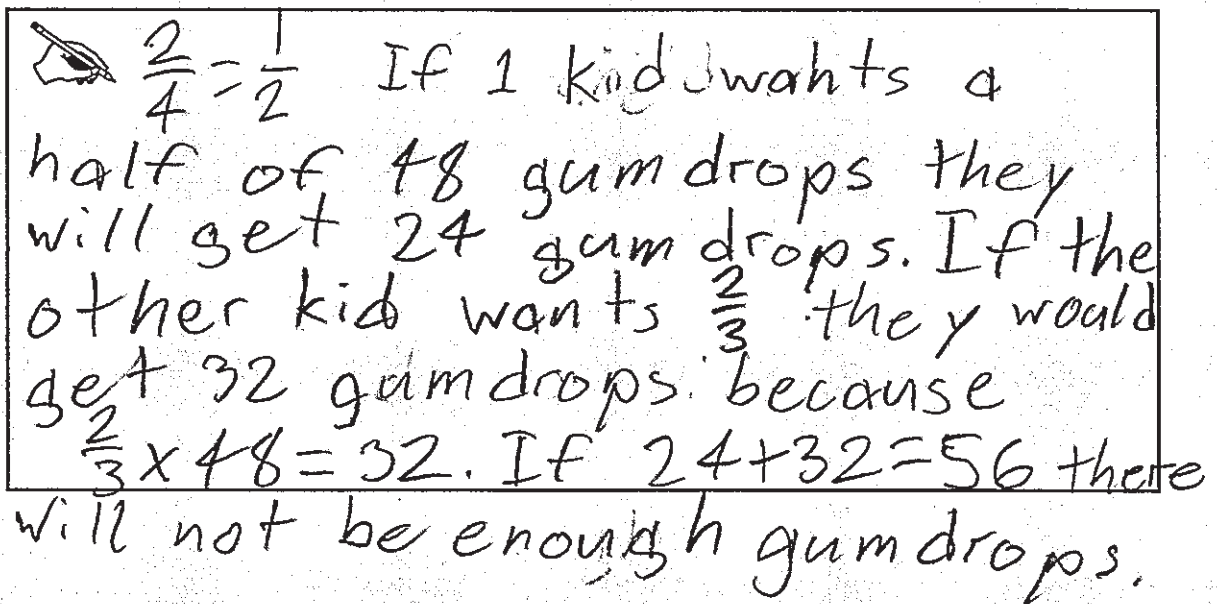 2/4 = 1/2 If 1 kid wants a
half of 48 gumdrops they
will get 24 gumdrops. If the
other kid wants 2/3 they would
get 32 gumdrops. because
2/3 x 48 = 32. If 24+32=56 there
will not be enough gumdrops.